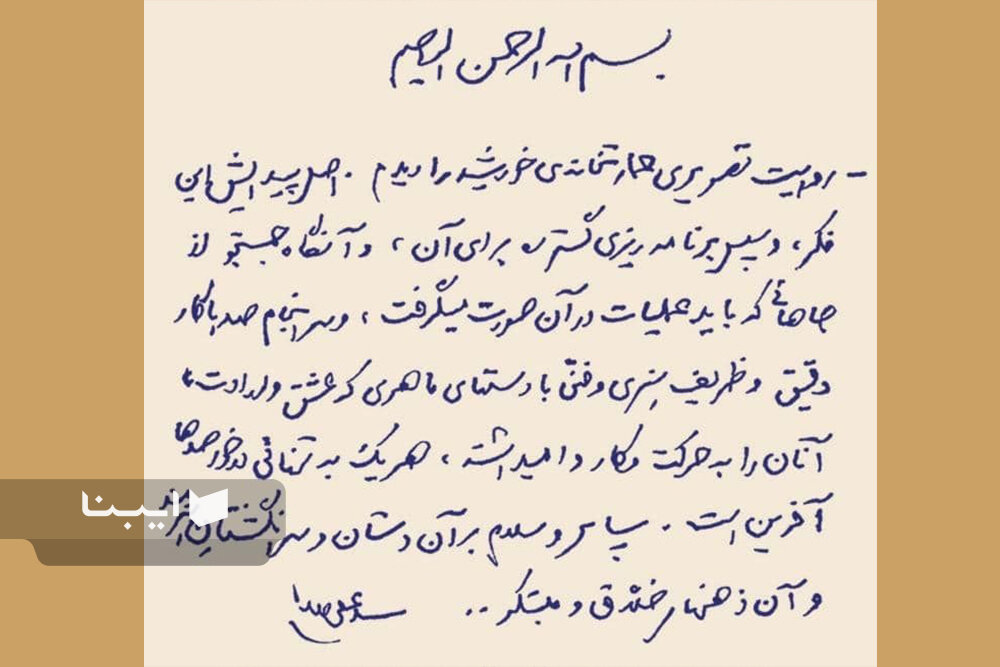 بسم الله الرحمن الرحیم
- روایت تصویری چهار کتابخانه‌ی خورشید را دیدم . اصل پیدایش این
فکر، و سپس برنامه‌ریزی گسترده برای آن، و آنگاه جستجو از
جاهائی که باید عملیات در آن صورت میگرفت، و سرانجام صدها کار
دقیق و ظریف هنری و فنّی با دستهای ماهری که عشق و ارادت،
آنان را به حرکت و کار وامیداشته، هر یک به تنهائی درخور صدها
آفرین است . سپاس و سلام بر آن دستان و سرانگشتان
و آن ذهنهای خلّاق و مبتکر ..
ایبنا